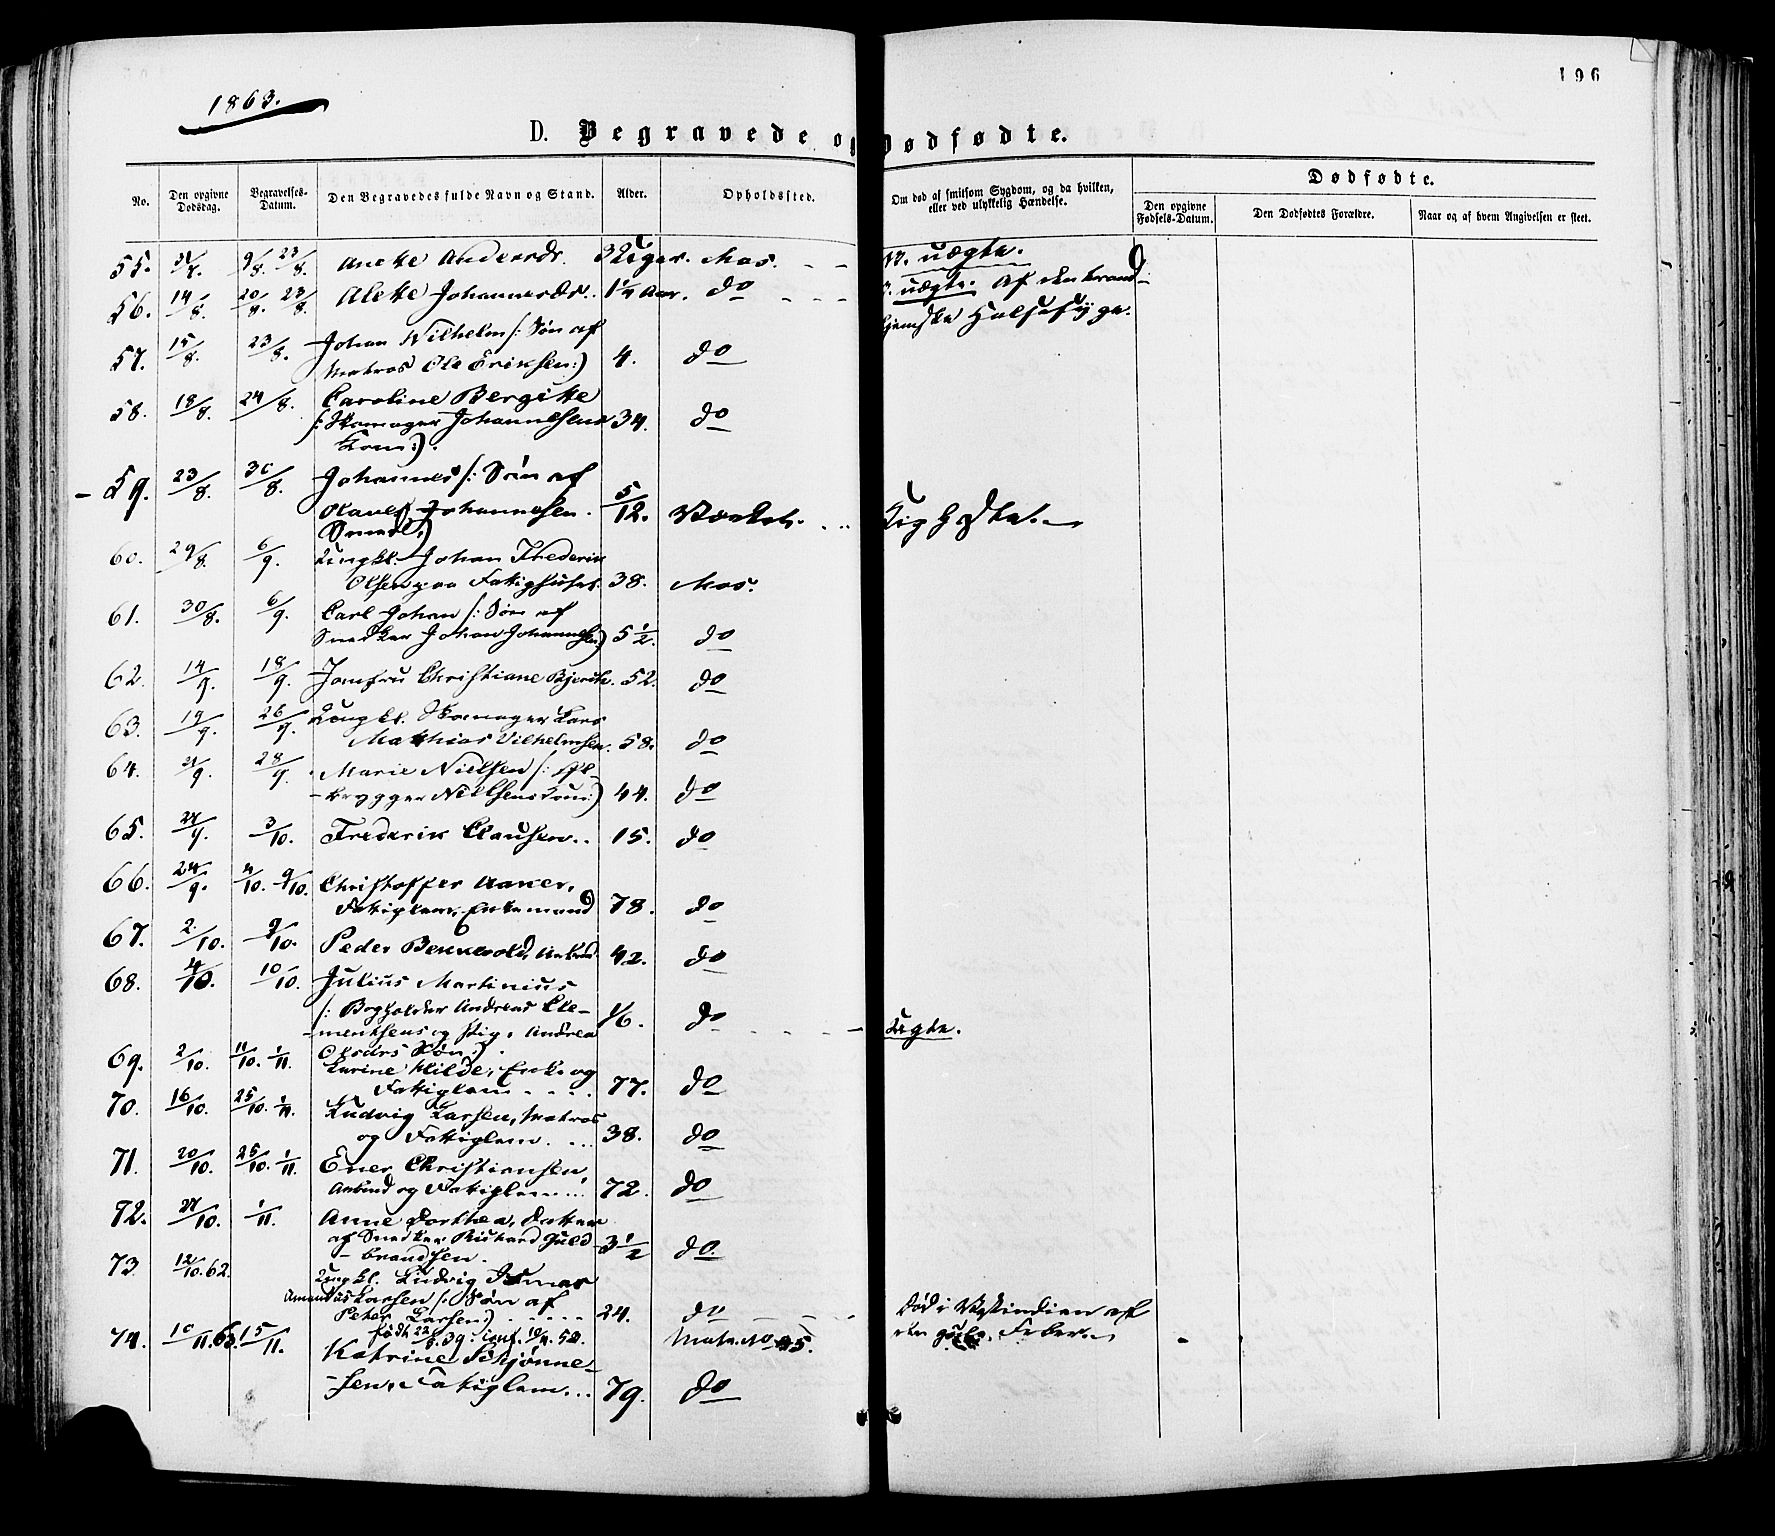 196
1863.
D. Begravede og Dødfødte.
No. Den opgivne Dødsdag. Begravelses-Datum. Den Begravedes fulde Navn og Stand. Alder. Opholdssted. Om død af smitsom Sygdom, og da hvilken, eller ved ulykkelig Hændelse. Dødfødte.
Den opgivne Fødsels-Datum. Den Dødfødtes Forældre. Naar og af hvem Angivelsen er skeet.
55. 9/8. 23/8. Andersdr. 3 Uger. Mos. uægte.
56. 14/8. 20/8. 23/8. Alette Johannesdr. 1 1/4 Aar. do uægte. Af den trond-
hjemske Halssyge.
57. 15/8. 23/8. Johan Vilhelm /: Søn af
Matros Ole Eriksen :) 4. do
58. 18/8. 24/8. Caroline Bergitte
/: Skomager Johannesens 34. do
Kone :).
59. 23/8. 30/8. Johannes /: Søn af
Johannesen. 5/12. Kighoste.
60. 29/8. 6/9. Ungkl. Johan Frederik
Olsen paa Fattighuset. 38. Mos.
61. 30/8. 6/9. Carl Johan /: Søn af
Snedker Johan Johannesen :) 5 1/2. do
62. 14/9. 18/9. Jomfru Christiane 52. do
63. 19/9. 26/9. Ungkl. Skomager Lars
Mathias Vilhelmsen. 58. do
64. 21/9. 28/9. Marie Nielsen /: Øl-
brygger Nielsens Kone :) 44. do
65. 3/10. Frederik Clausen. 15. do
66. 24/9. 4/10. 9/10. Christoffer
Fattiglem, Enkemand 78. do
67. 2/10. 9/10. Peder Bennevold, 42. do
68. 4/10. 10/10. Julius Martinius
/: Bogholder Andreas Cle-
mentsens og Pig. Andrea 1/6. do Uægte.
Olsdrs Søn :).
69. 2/10. 11/10. 1/11. Karine Hilde, Enke og
Fattiglem 77. do
70. 16/10. 25/10. 1/11. Ludvig Larsen, Matros
og Fattiglem. 38. do
71. 20/10. 25/10. 1/11. Ener Christiansen,
og Fattiglem 72. do
72. 27/10. 1/11. Anne Dorthea, Datter
af Snedker Richard Guld-
brandsen. 3 1/2 do.
73. 12/10. 62. Ungkl. Ludvig
Larsen /: Søn af
Peter Larsen :) 24. do Død i Vestindien af
den gule Feber.
født 22/8. 39. conf. 54. Matr. No 95.
74. 10/11. 63. 15/11. Katrine Schjønne-
sen, Fattiglem 79. do